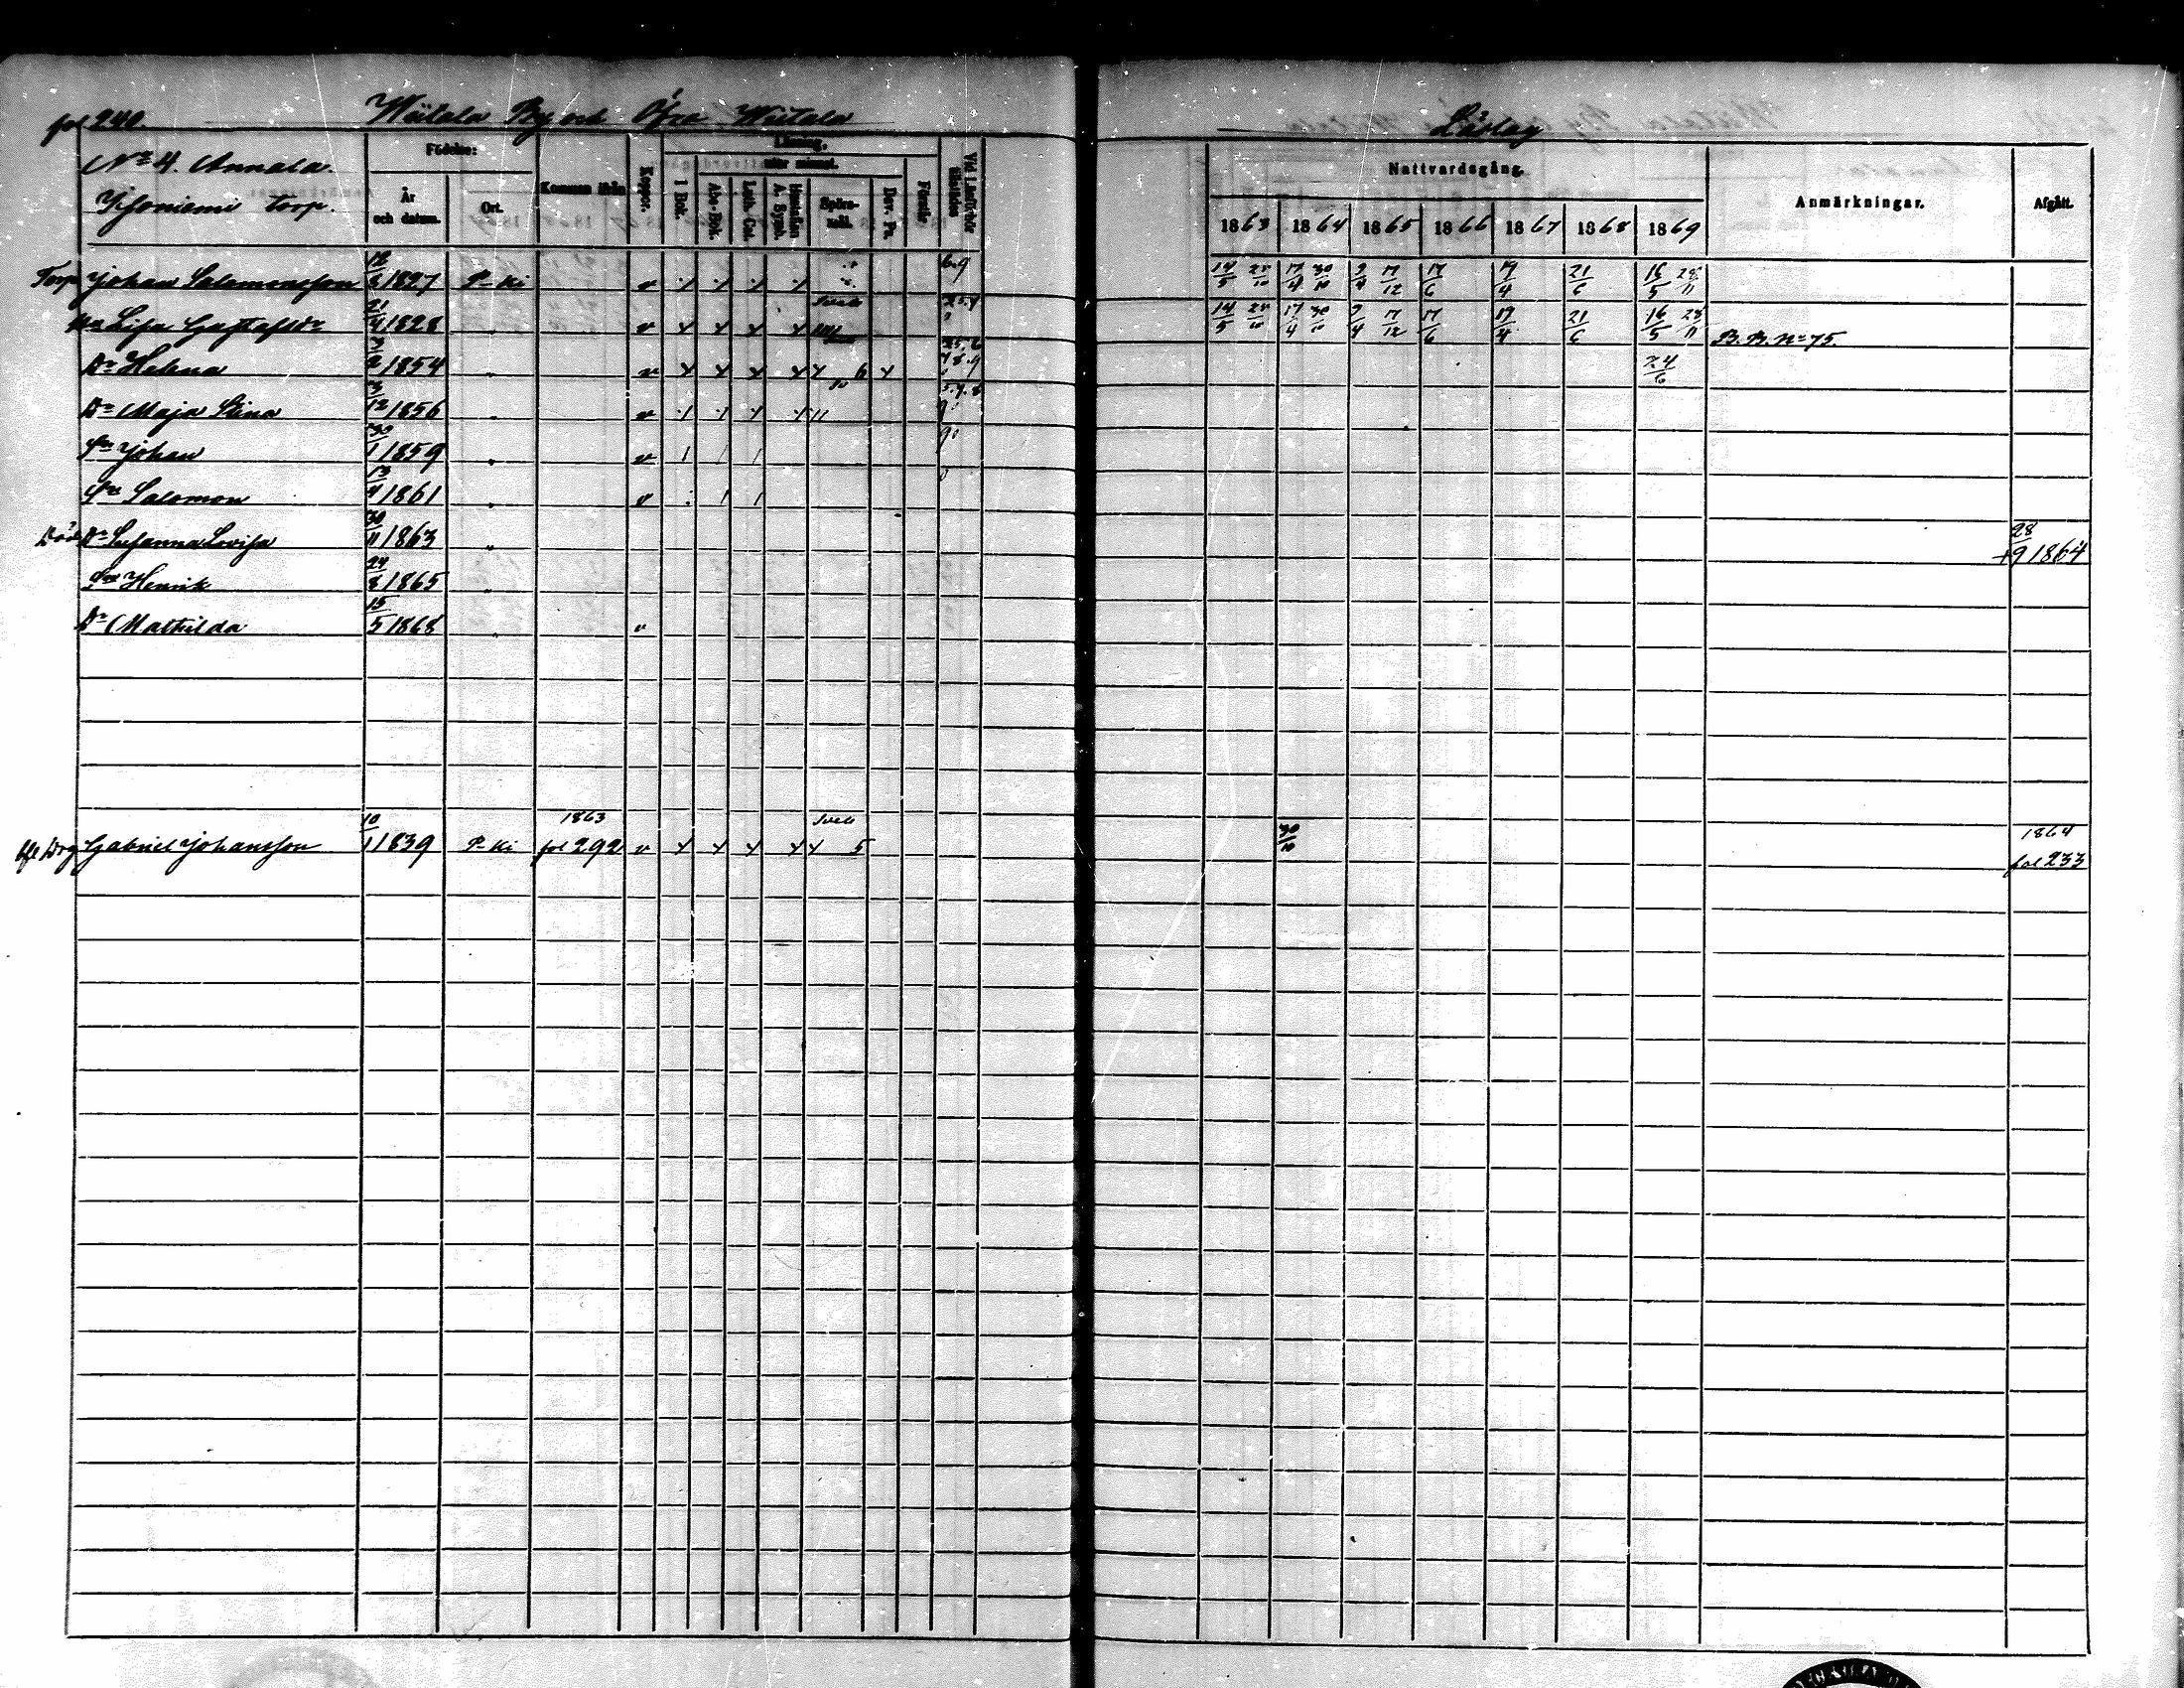 fol 240. Wiitala By och Öfra Wiitala Läslag
No 4. Annala.
torp.
Födelse: År och datum. Ort. Kommen ifrån Koppor. Läsning, I Bok. utur minnet. Abc-Bok. Luth. Cat. Hustaflan A. Symb. Spörs-mål. Dav. Ps. Förstår Vid Läsförhör tillstädes
Nattvardsgång. 1863 1864 1865 1866 1867 1868 1869 Anmärkningar. Afgått.
Torp Johan Salomonsson 12/8 1827 P-ki v 6.9 14/5 25/10 17/4 30/10 9/4 17/12 17/6 19/4 21/6 16/5 28/11
Hu Lisa Gustafsdr 21/4 1828 " v 14/5 25/10 17/4 30/10 9/4 17/12 17/6 19/4 21/6 16/5 28/11 B. B. No 75.
Dr Helena 1854 " v 6 24/6
Dr Maja Stina 3/12 1856 " v
Sn Johan 30/1 1859 " v
Sn Salomon 13/4 1861 " v
Död Dr Susanna Lovisa 30/11 1863 " 28/9 + 1864
Sn Henrik 24/8 1865 "
Dr Mathilda 15/5 1868 " v
1863 1864
Gabriel Johansson 10/1 1839 P-ki fol 292 v 5 30/10 fol 233